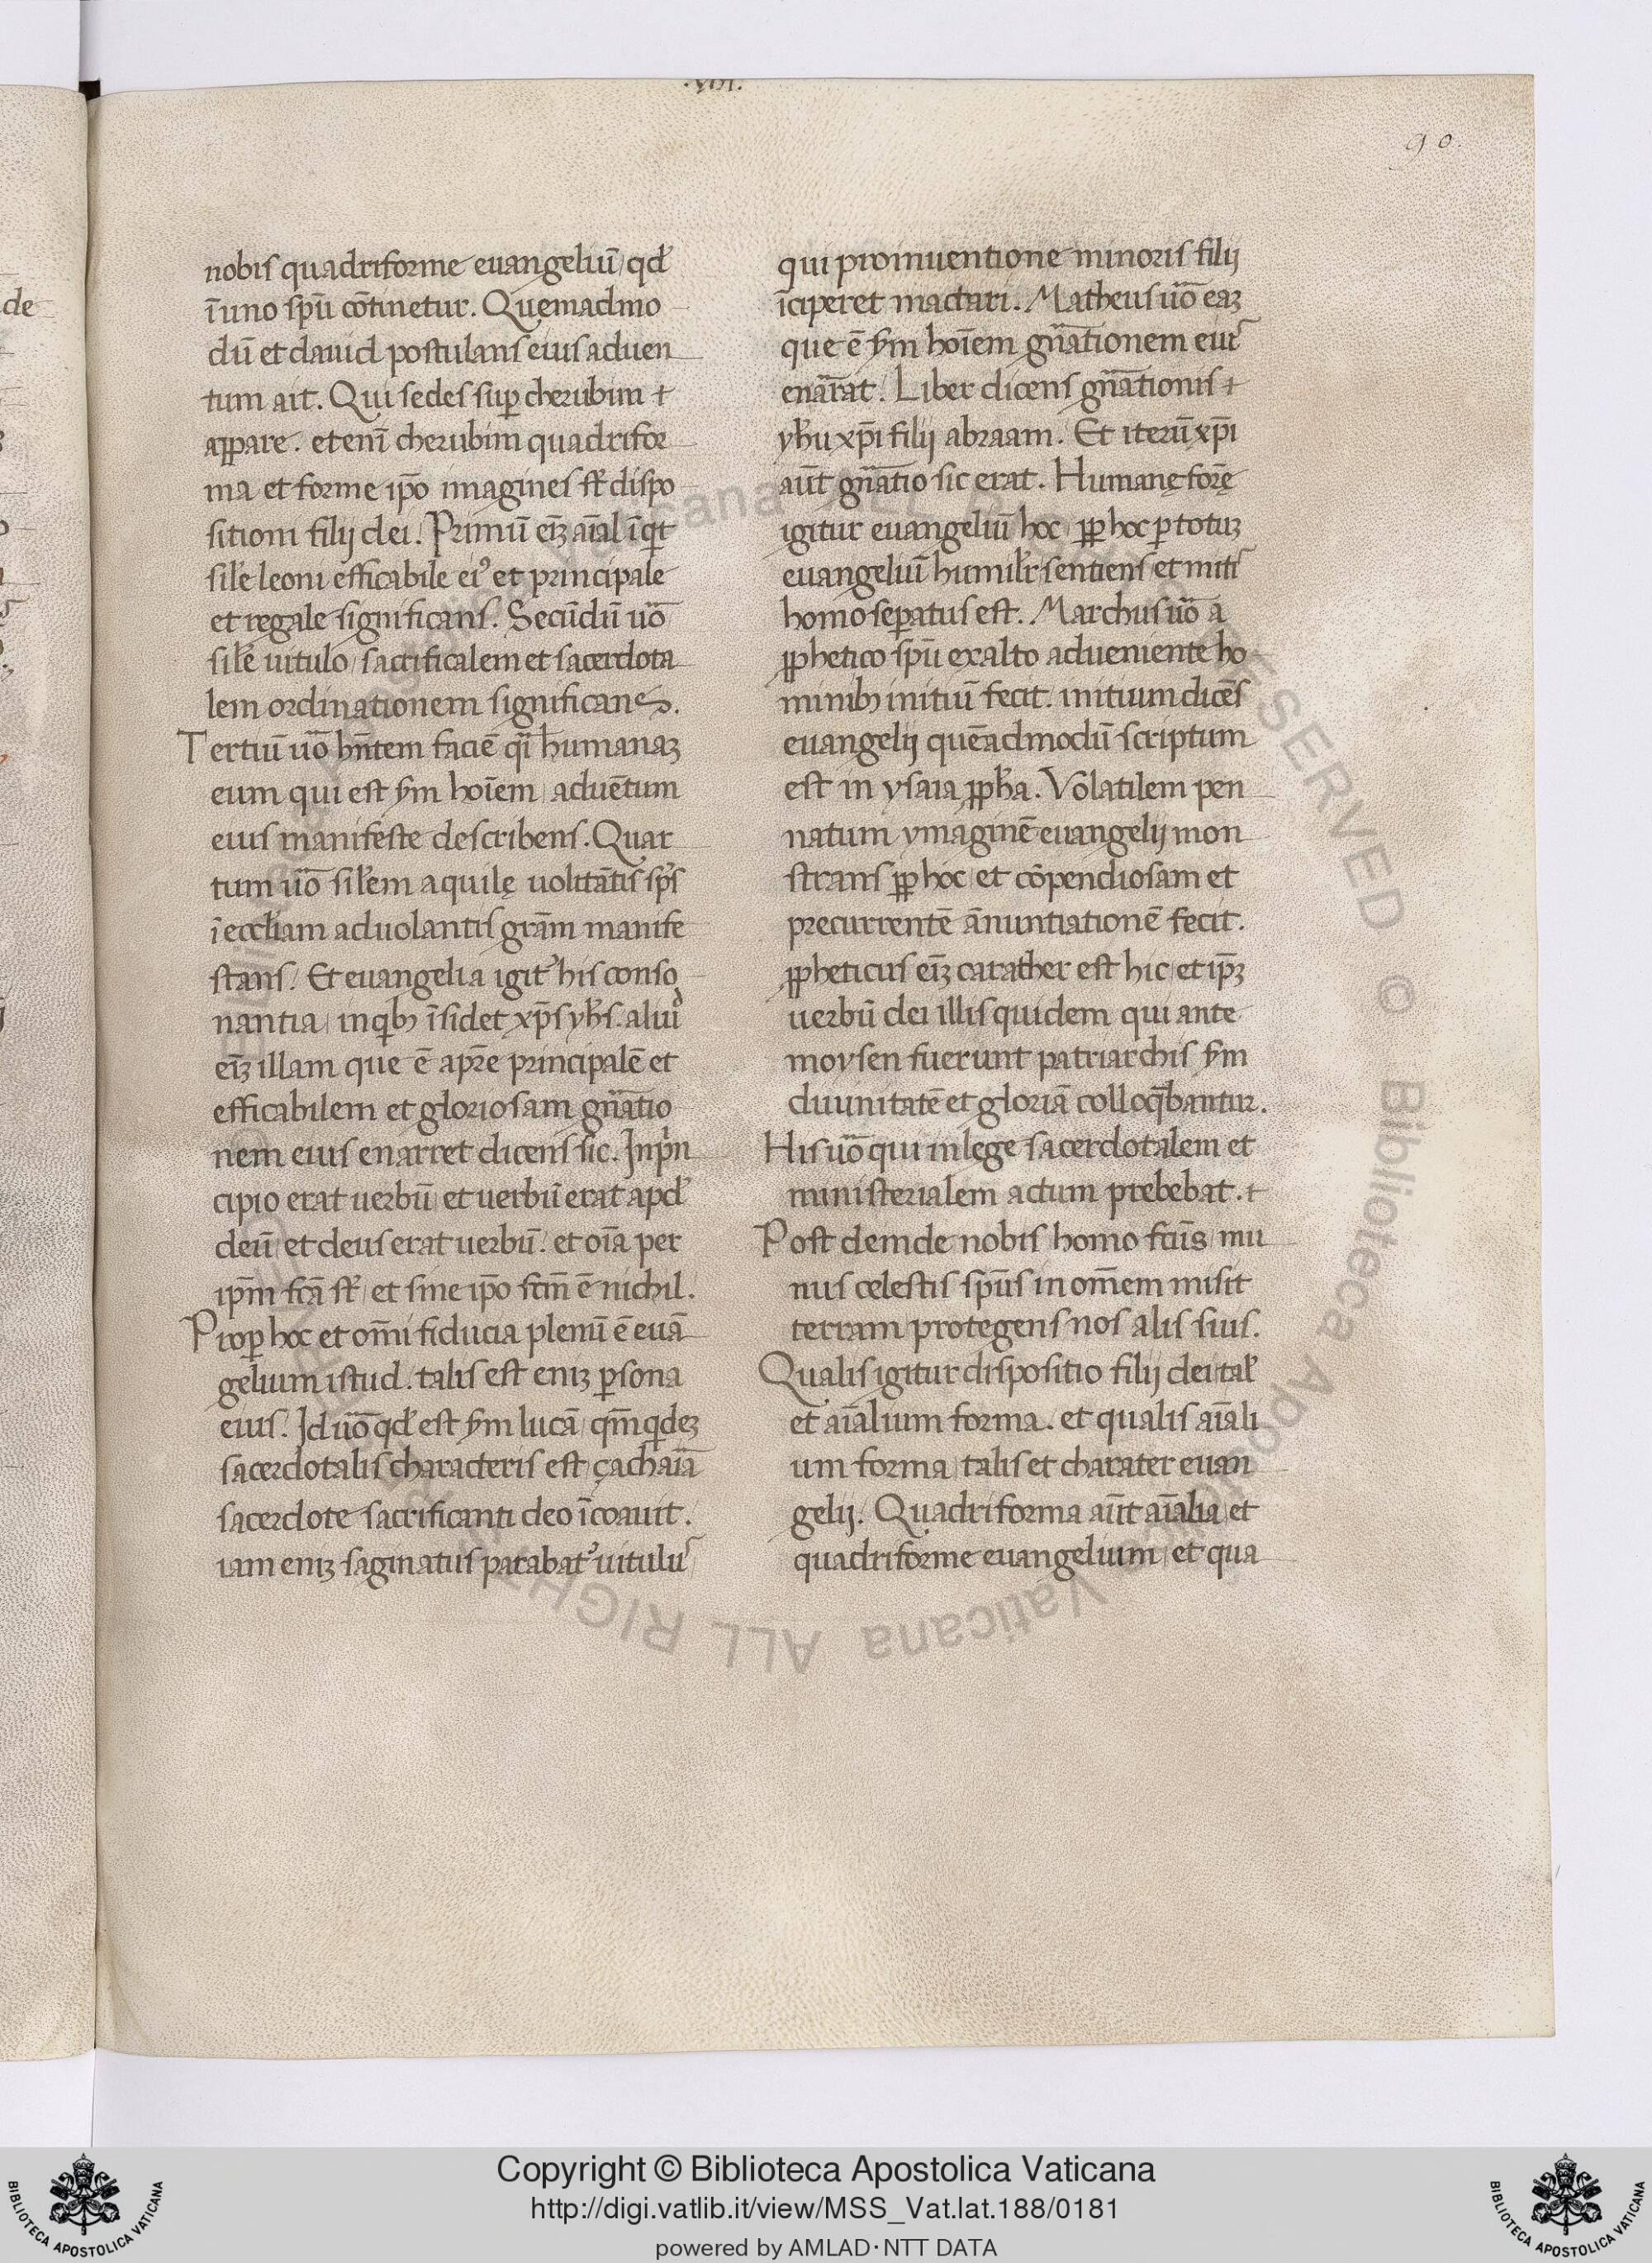 .VIII.
90.
nobis quadriforme euangeliū qd̛
ī uno sp̄u cōtinetur. Quemadmo
dū et dauid postulans eius aduen
tum ait. Qui sedes sup̱ cherubim ⁊
appare. etenī cherubim quadrifor
ma et forme ip̄o imagines st̄ dispo
sitioni filij dei. Primū eīꝫ aīal īqͥt
sil̛e leoni efficabile eiꝰ et principale
et regale significans. Secūdū u̅o
sil̛e uitulo sacrificalem et sacerdota
lem ordinationem significans.
Tertiū u̅o hn̄tem faciē qͣi humanaꝫ
eum qui est s̄m hoīem aduētum
eius manifeste describens. Quar
tum u̅o sil̛em aquilę uolitātis sp̄s
ī eccl̛iam aduolantis grām manife
stans. Et euangelia igitꝰ his conso
nantia in qͥbꝫ īsidet xp̄s yh̄s. aliud
eīꝫ illam que ē a pr̄e principalē et
efficabilem et gloriosam gn̄atio
nem eius enarret dicens sic. In pͥn
cipio erat uerbū et uerbū erat apd̛
deū et deus erat uerbū. et oīa per
ip̄m fc̄a st̄ et sine ip̄o fcm̄ ē nichil.
Prop̱ hoc et om̄i fiducia plenū ē euā
gelium istud. talis est eniꝫ ꝑsona
eius. Id u̅o qd̛ est s̄m lucā qm̄ qͥdeꝫ
sacerdotalis characteris est çachaīa
sacerdote sacrificanti deo īcoauit.
iam eniꝫ saginatus parabatꝰ uitulus
qui pro inuentione minoris filij
īciperet mactari. Matheus u̅o eaꝫ
que ē s̄m hoīem gn̄ationem eius
enar̄at. Liber dicens gn̄ationis ⁊
yh̄u xp̄i filij abraam. Et iterū xp̄i
aūt gn̄atio sic erat. Humanę for̄ę
igitur euangeliū hoc ꝓp̱ hoc ꝑ totuꝫ
euangeliū humil̛r sentiens et mitis
homo seꝑatus est. Marchus u̅o a
ꝓphetico sp̄u ex alto adueniente ho
minibꝫ initiū fecit. initium dicēs
euangelij quēadmodū scriptum
est in ysaia ꝓph̄a. Volatilem pen
natum ymaginē euangelij mon
strans ꝓp̱ hoc et cōpendiosam et
precurrentē ānuntiationē fecit.
ꝓpheticus eīꝫ carather est hic et ip̄ꝫ
uerbū dei illis quidem qui ante
moysen fuerunt patriarchis s̄m
diuinitatē et gloriā colloq̄bantur.
His u̅o qui in lege sacerdotalem et
ministerialem actum prebebat. ⁊
Post deinde nobis homo fc̄us mu
nus celestis sp̄us in om̄em misit
terram protegens nos alis suis.
Qualis igitur dispositio filij dei tal̛
et aīalium forma. et qualis aīali
um forma talis et charater euan
gelij. Quadriforma aūt aīalia et
quadriforme euangelium et qua
Copyright © Biblioteca Apostolica Vaticana
http://digi.vatlib.it/view/MSS_Vat.lat.188/0181
powered by AMLAD·NTT DATA